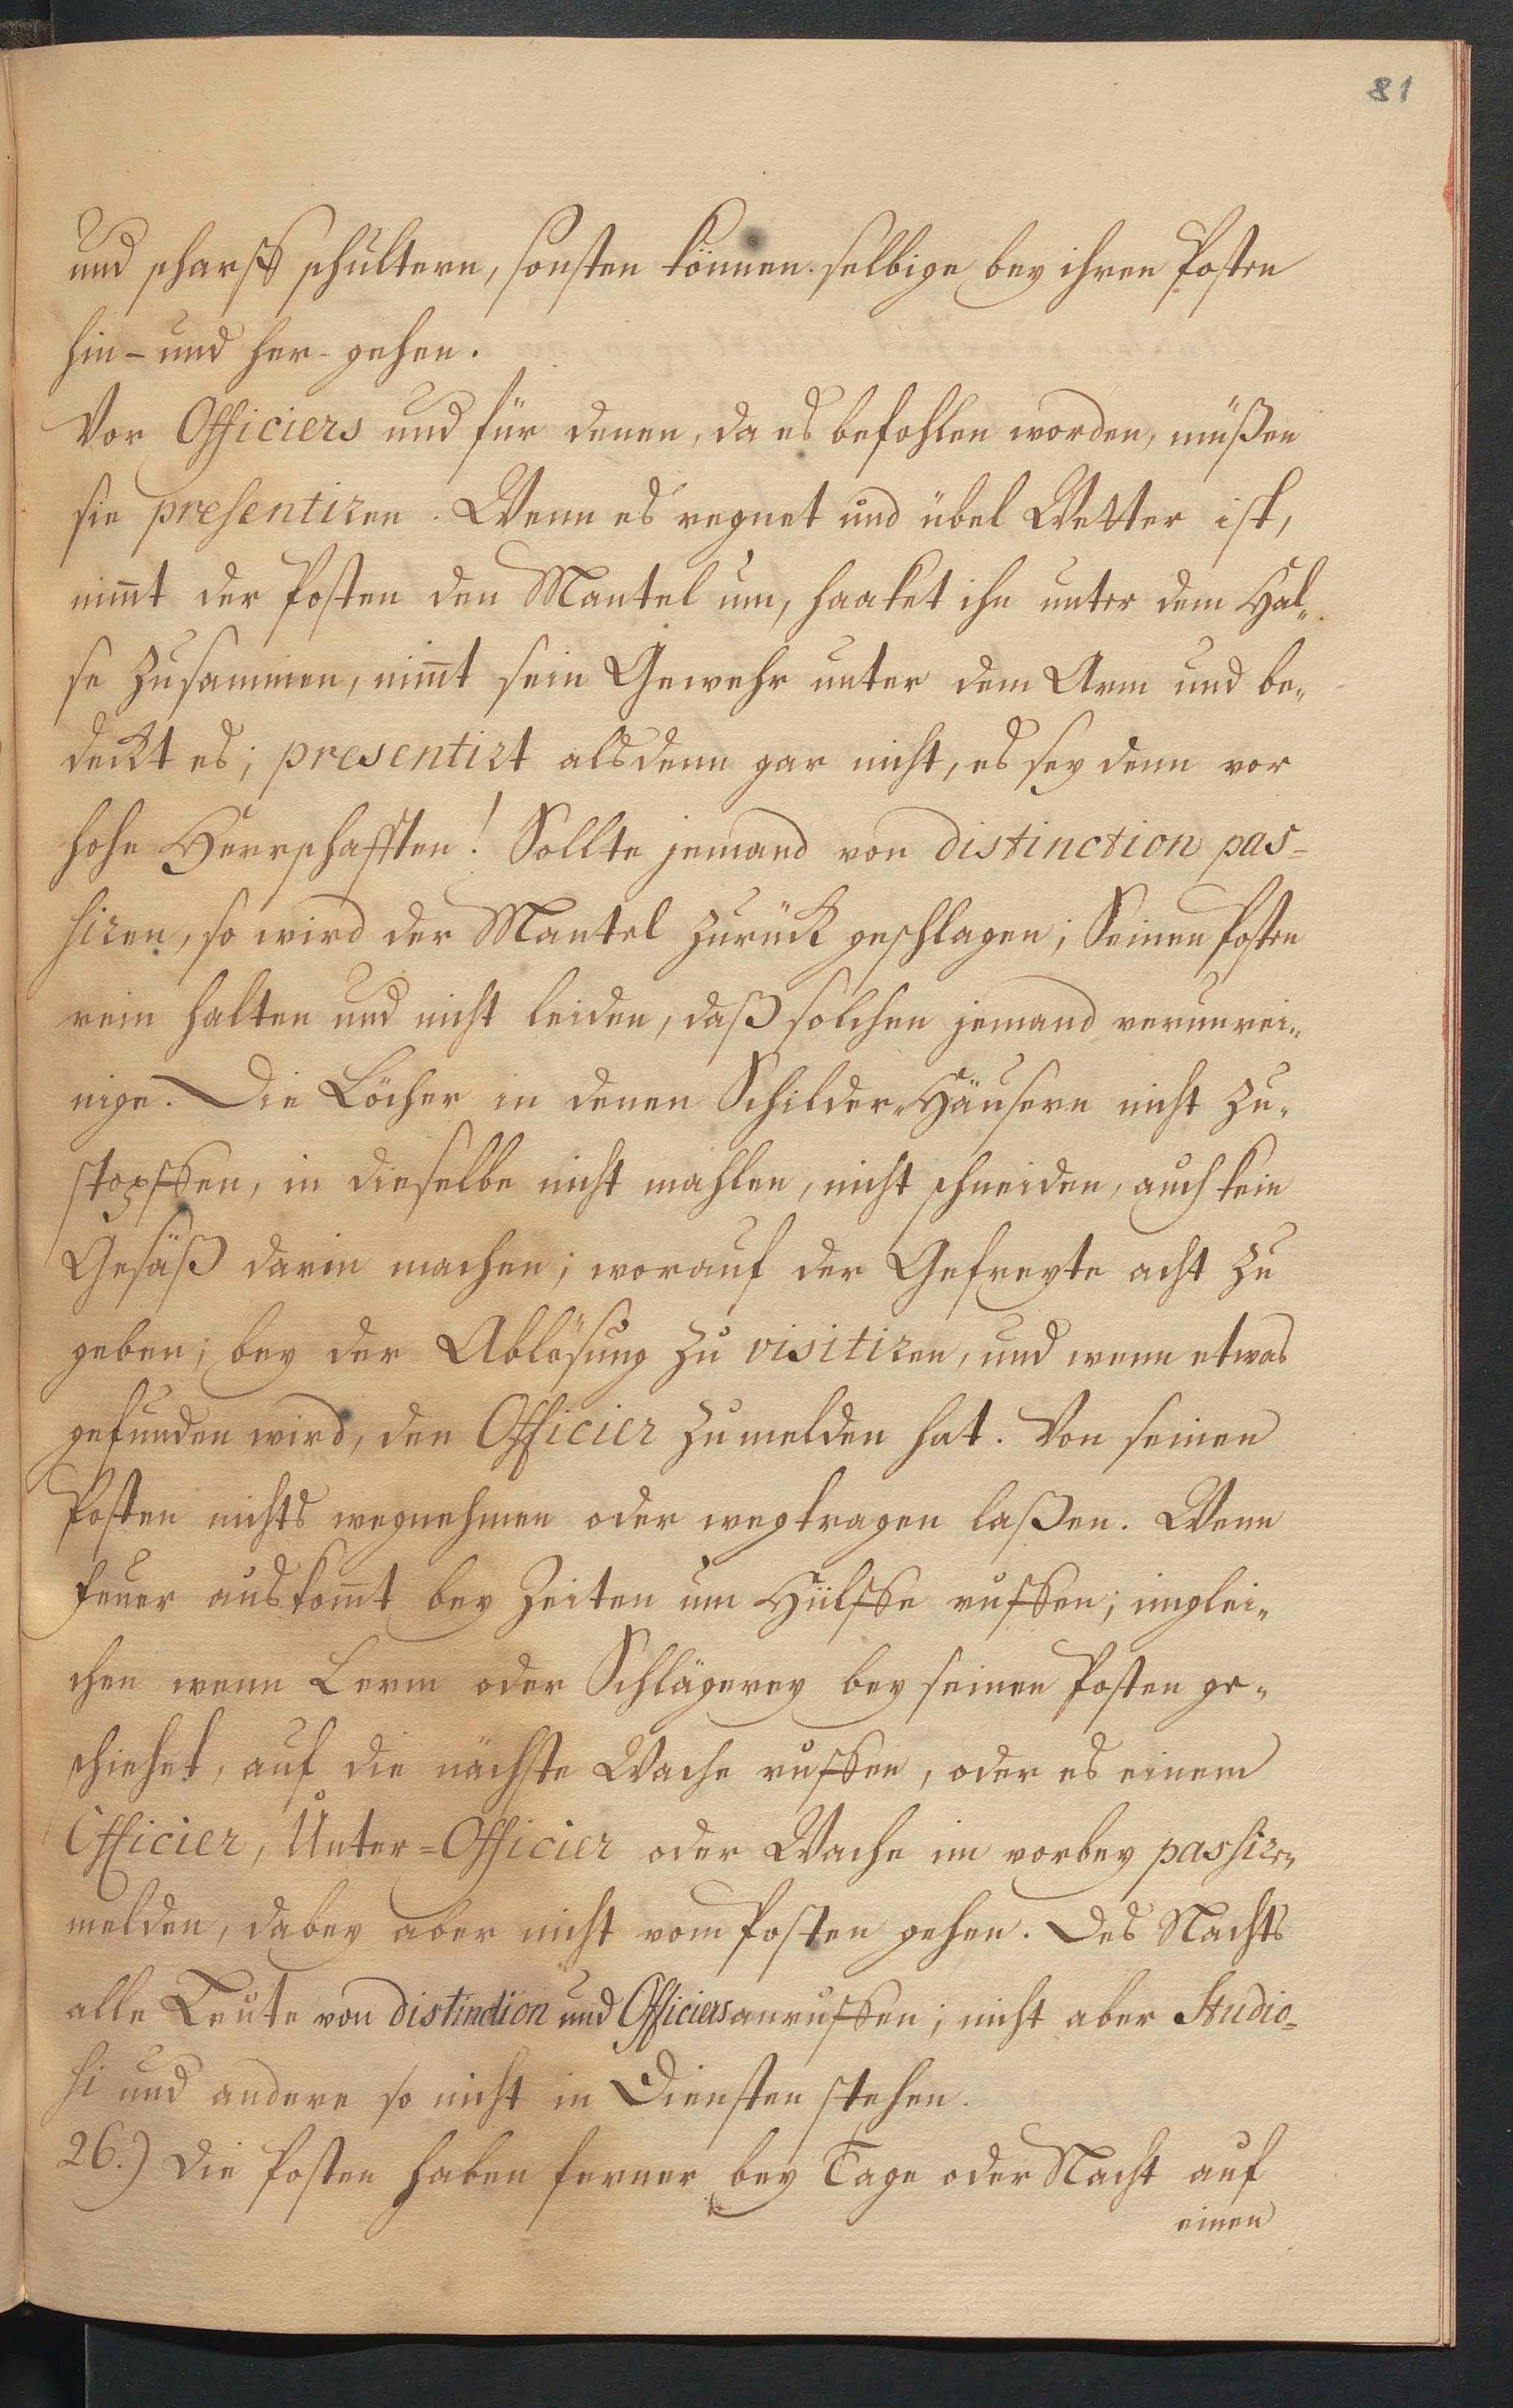 81
und scharff schultern, sonsten können selbige bey ihren Posten
hin- und her-gehen.
Vor Officiers und für denen, da es befohlen worden, müßen
sie presentiren. Wenn es regnet und übel Wetter ist,
nim̄t der Posten den Mantel um, haaket ihn unter dem Hal„
se zusammen, nim̄t sein Gewehr unter dem Arm und be„
deckt es; presentirt alsdenn gar nicht, es sey denn vor
hohe Herrschafften! Sollte jemand von distinction pas=
siren, so wird der Mantel zurück geschlagen; Seinen Posten
rein halten und nicht leiden, daß solchen jemand verunrei„
nige. Die Löcher in denen Schilder-Häusern nicht zu„
stopffen, in dieselbe nicht mahlen, nicht schneiden, auch kein
Gesäß darin machen; worauf der Gefreyte acht zu
geben; bey der Ablösung zu visitiren, und wenn etwas
gefunden wird, den Officier zu melden hat. Von seinen
Posten nichts wegnehmen oder wegtragen laßen. Wenn
Feuer auskom̄t bey Zeiten um Hülffe ruffen; inglei„
chen wenn Lerm oder Schlägerey bey seinen Posten ge„
schiehet, auf die nächste Wache ruffen, oder es einem
Officier, Unter=Officier oder Wache im vorbey passiren
melden, dabey aber nicht vom Posten gehen. Des Nachts
alle Leute von distinction und Officiers anruffen; nicht aber Studio=
si und andere so nicht in Diensten stehen.
26.) Die Posten haben ferner bey Tage oder Nacht auf
einen